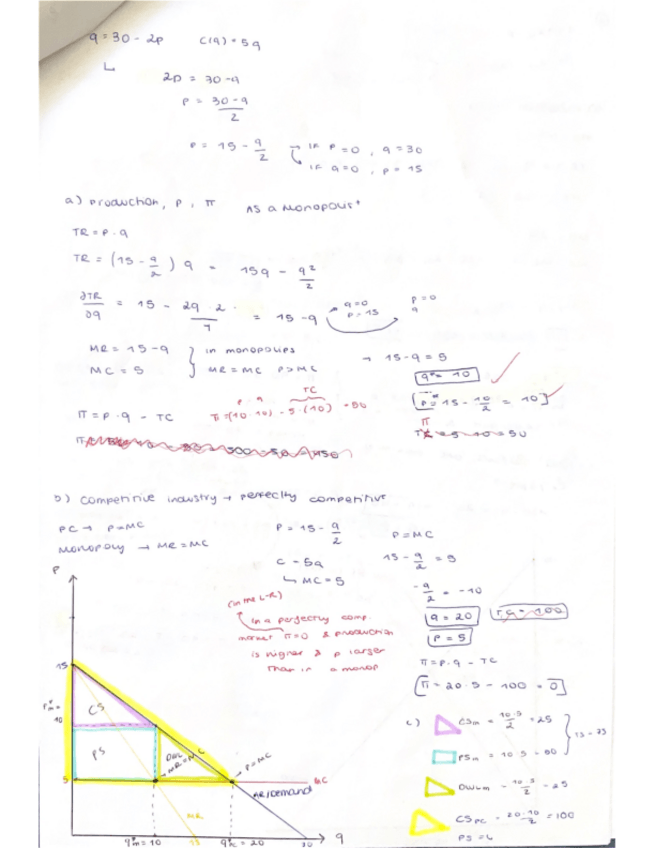 q = 30 - 2p    C(q) = 5q
2p = 30 - q
p = 30 - q / 2
p = 15 - q/2 → IF p = 0, q = 30
IF q = 0, p = 15
a) production, p, π AS a monopolist
TR = p · q
TR = (15 - q/2) q = 15q - q²/2
∂TR/∂q = 15 - = 15 - q
q = 0
p = 15
p = 0
q
MR = 15 - q } in monopolies → 15 - q = 5
MC = 5 } MR = MC P > MC
q* = 10
p* = 15 - 10/2 = 10
p · q TC
π = p · q - TC π = (10 · 10) - 5 · (10) = 50
π
b) competitive industry → perfectly competitive
PC → p = MC
Monopoly → MR = MC
p = 15 - q/2
C = 5q
↳ MC = 5
P = MC
15 - q/2 = 5
-q/2 = -10
q = 20
p = 5
π = p · q - TC
π = 20 · 5 - 100 = 0
(in the L-R)
in a perfectly comp.
market π = 0 & production
is higher & p larger
than in a monop
P
15
p*m =
10
5
CS
PS
DWL
MR = MC
P = MC
MC
AR/Demand
MR
q*m = 10
15
q*pc = 20
30
q
c) CSm = 10·5/2 = 25
PSm = 10·5 = 50
DWLm = 10·5/2 = 25
CS PC = 20·10/2 = 100